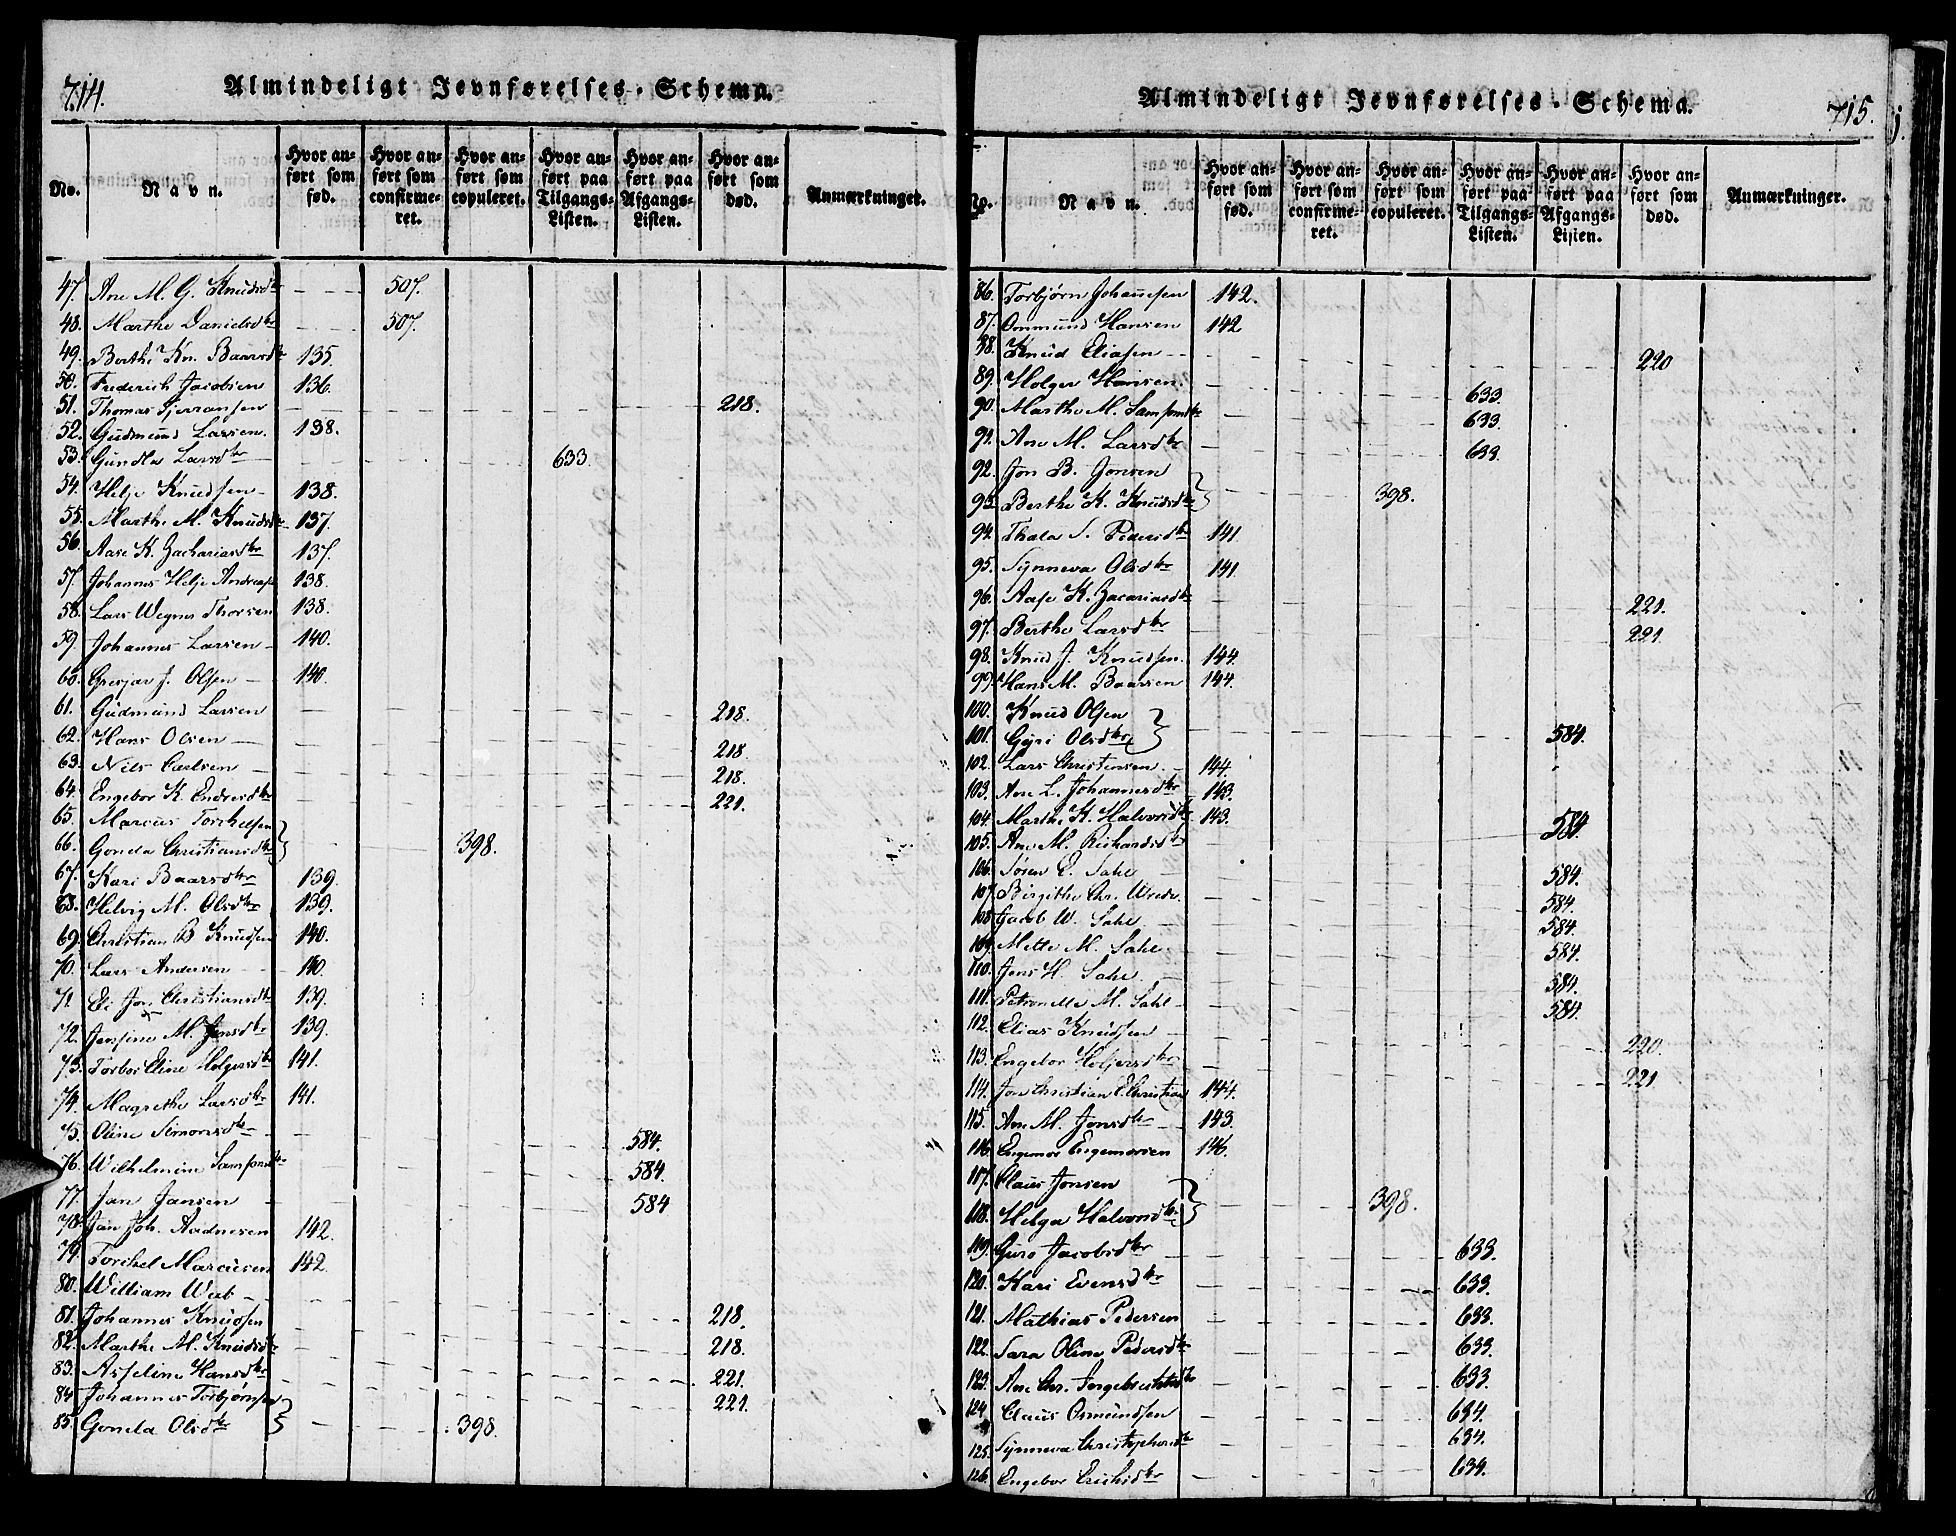 714.
Almindeligt Jevnførelses-Schema.
No. Navn. Hvor anført som fød. Hvor anført som confirmeret. Hvor anført som copuleret. Hvor anført paa Tilgangs-Listen. Hvor anført paa Afgangs-Listen. Hvor anført som død. Anmærkninger.
47. Ane M. G. Knudsdtr 507.
48. Marthe Danielsdtr 507.
49. Berthe Kn. Baarsdtr 135.
50. Frederich Jacobsen 136.
51. Thomas Sjerransen 218.
52. Gudmund Larsen. 138.
53. Gundla Larsdtr 633.
54. Helje Knudsen 138.
55. Marthe M. Knudsdtr 137.
56. Aase K. Zachariasdtr 137.
57. Johannes Helje Andreas 138.
58. Lars Wegner Thorsen 138.
59. Johannes Larsen 140.
60. Gresjar J. Olsen 140.
61. Gudmund Larsen 218.
62. Hans Olsen 218
63. Nils Carlsen 218.
64. Engebor K. Endresdtr 221.
65. Marcus Torchelsen
66. Gonda Christiansdtr } 398.
67. Kari Baarsdtr 139.
68. Helvig M. Olsdtr 139.
69. Christian B Knudsen 140.
70. Lars Andersen 140.
71. Eli Jon Christiansdtr 139.
72. Jensine M. Jonsdtr 139.
73. Torbor Eline Holgersdtr 141.
74. Magrethe Larsdtr 141.
75. Oline Simonsdtr 584.
76. Wilhelmine Samsonsdtr 584.
77. Jan Jansen 584
78. Jan Joh. Aadnesen 142.
79. Torchel Marcusen 142
80. William Web
81. Johannes Knudsen 218.
82. Marthe M. Knudsdtr 218.
83. Asseline Hansdtr 221.
84. Johannes Torbjørnsen 221.
85. Gonda Olsdtr } 398.
Almindeligt Jevnførelses-Schema.
715.
No. Navn. Hvor anført som fød. Hvor anført som confirmeret. Hvor anført som copuleret. Hvor anført paa Tilgangs-Listen. Hvor anført paa Afgangs-Listen. Hvor anført som død. Anmærkninger.
86. Torbjørn Johannesen 142.
87. Ommund Hansen 142
88. Knud Eliasen 220
89. Holger Hansen. 633.
90. Marthe M. Samsonsdtr 633.
91. Ane M. Larsdtr 633.
92. Jon B. Jonsen
93. Berthe K. Knudsdtr } 398.
94. Thala S. Pedersdtr 141
95. Synneva Olsdtr 141.
96. Aase K. Zacariasdtr 221.
97. Berthe Larsdtr 221.
98. Knud J. Knudsen. 144.
99. Hans M. Baarsen 144.
100. Knud Olsen
101. Gyri Olsdtr } 584.
102. Lars Christensen 144.
103. Ane L. Johannesdtr 143.
104. Marthe K. Halvorsdtr 143.
105. Ane M. Richardsdtr 584.
106. Søren E. Sahl 584.
107. Birgithe Chr. Wrede. 584.
108. Jacob W. Sahl 584.
109. Mette M. Sahl 584.
110. Jens H. Sahl 584.
111. Petronelle M. Sahl 584.
112. Elias Knudsen 220.
113. Engebor Holjersdtr 221
114. Jon Christian E. Christian 144.
115. Ane M. Jonsdtr 143.
116. Engemor Engemorsen 146.
117. Claus Jonsen
118. Helga Halvorsdtr } 398.
119. Guro Jacobsdtr 633.
120. Kari Evensdtr 633.
121. Mathias Pedersen 633.
122. Sara Oline Pedersdtr 633.
123. Ane Chr. Ingebretsdtr 633.
124. Claus Osmundsen 634.
125. Synneva Christophersdtr 634.
126. Engebor Erichsdtr 634.